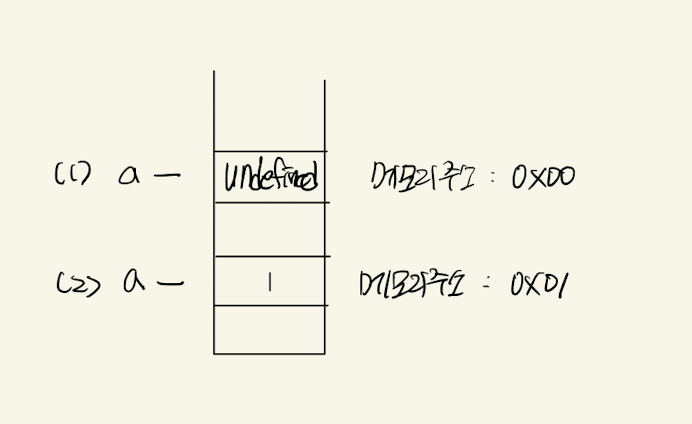 (1) a — undefined 메모리주소 : 0x00
(2) a — 1 메모리주소 : 0x01